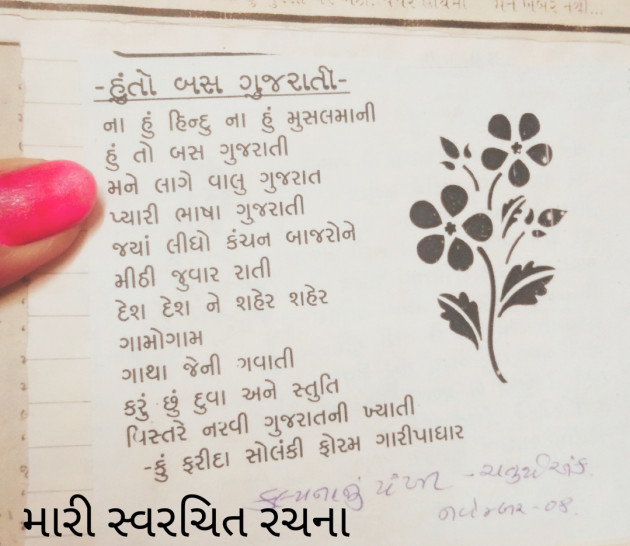 -હુંતો બસ ગુજરાતી-
ના હું હિન્દુ ના હું મુસલમાની
હું તો બસ ગુજરાતી
મને લાગે વાલુ ગુજરાત
પ્યારી ભાષા ગુજરાતી
જયાં લીધો કંચન બાજરોને
મીઠી જુવાર રાતી
દેશ દેશ ને શહેર શહેર
ગામોગામ
ગાથા જેની ગવાતી
કરું છું દુવા અને સ્તુતિ
વિસ્તરે નરવી ગુજરાતની ખ્યાતી
-કું ફરીદા સોલંકી ફોરમ ગારીપાધાર
નવેમ્બર-૦૪.
મારી સ્વરચિત રચના